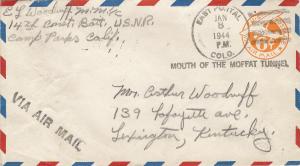 E L Woodruff M.M.1/c
14th Const. Batt. U.S.N.R.
Camp Parks Calif.
EAST PORTAL
JAN
8
1944
P.M.
COLO.
6¢
MOUTH OF THE MOFFAT TUNNEL
VIA AIR MAIL
Mrs. Esther Woodruff
139 Lafayette ave.
Lexington, Kentucky.